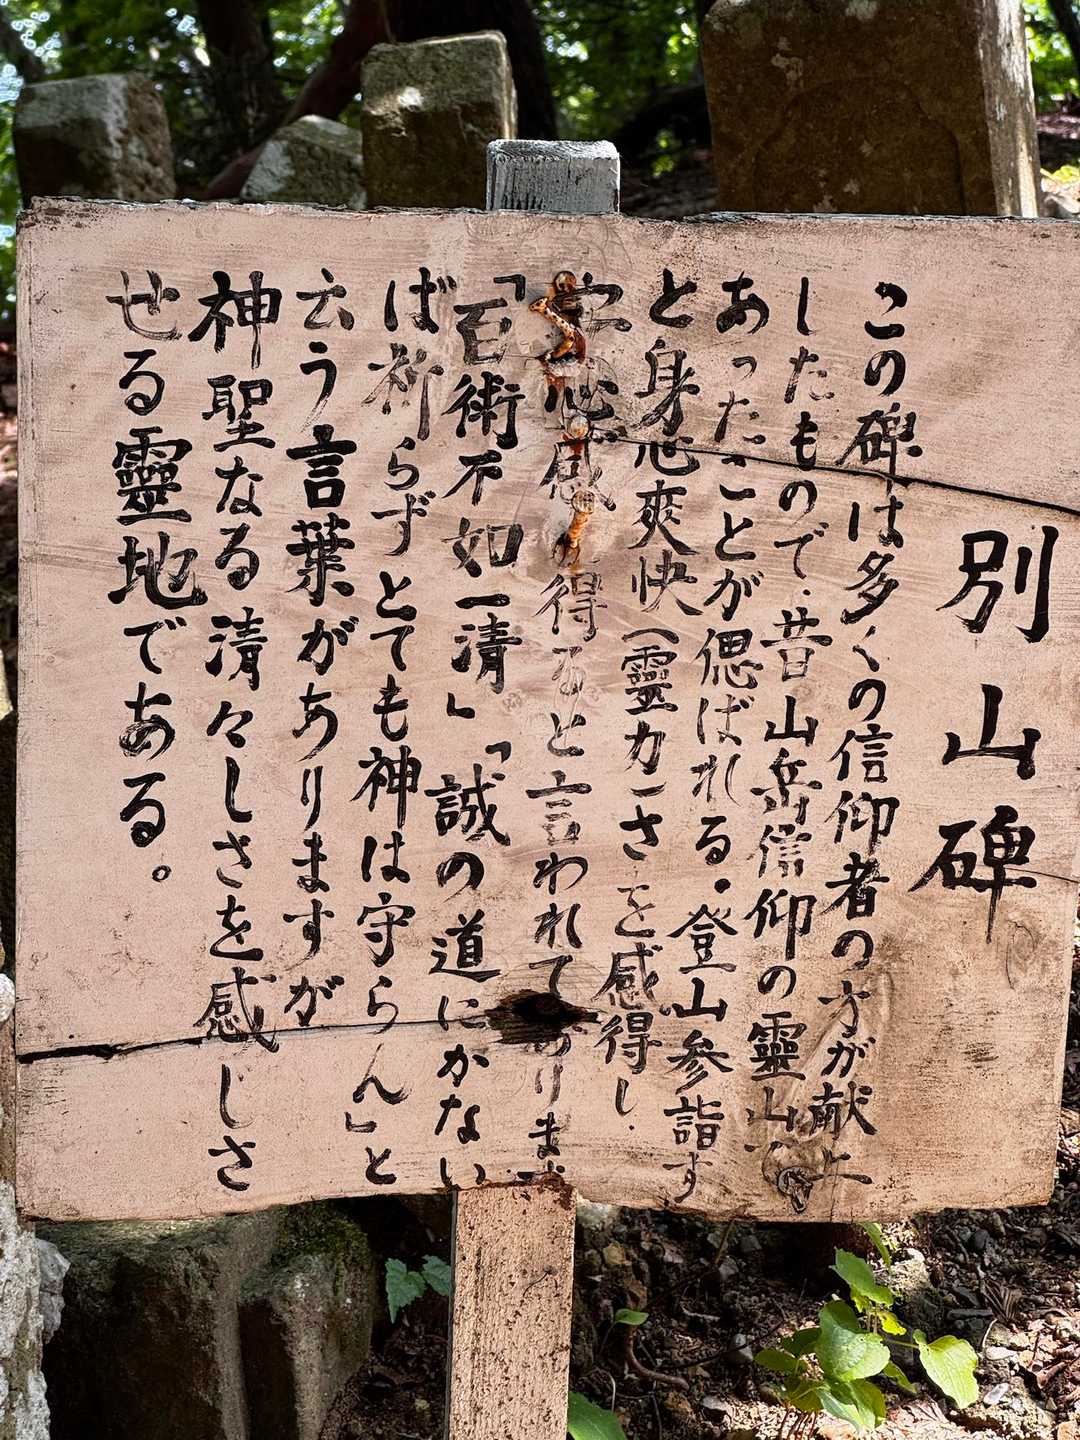 別山碑
この碑は多くの信仰者の方が献上
したもので、昔山岳信仰の靈山で
あったことが偲ばれる。登山参詣す
と身心爽快（靈力）さを感得し、
安心感得ると言われております
「百術不如一清」「誠の道にかない
ば祈らずとても神は守らん」と
云う言葉がありますが
神聖なる清々しさを感じさ
せる靈地である。